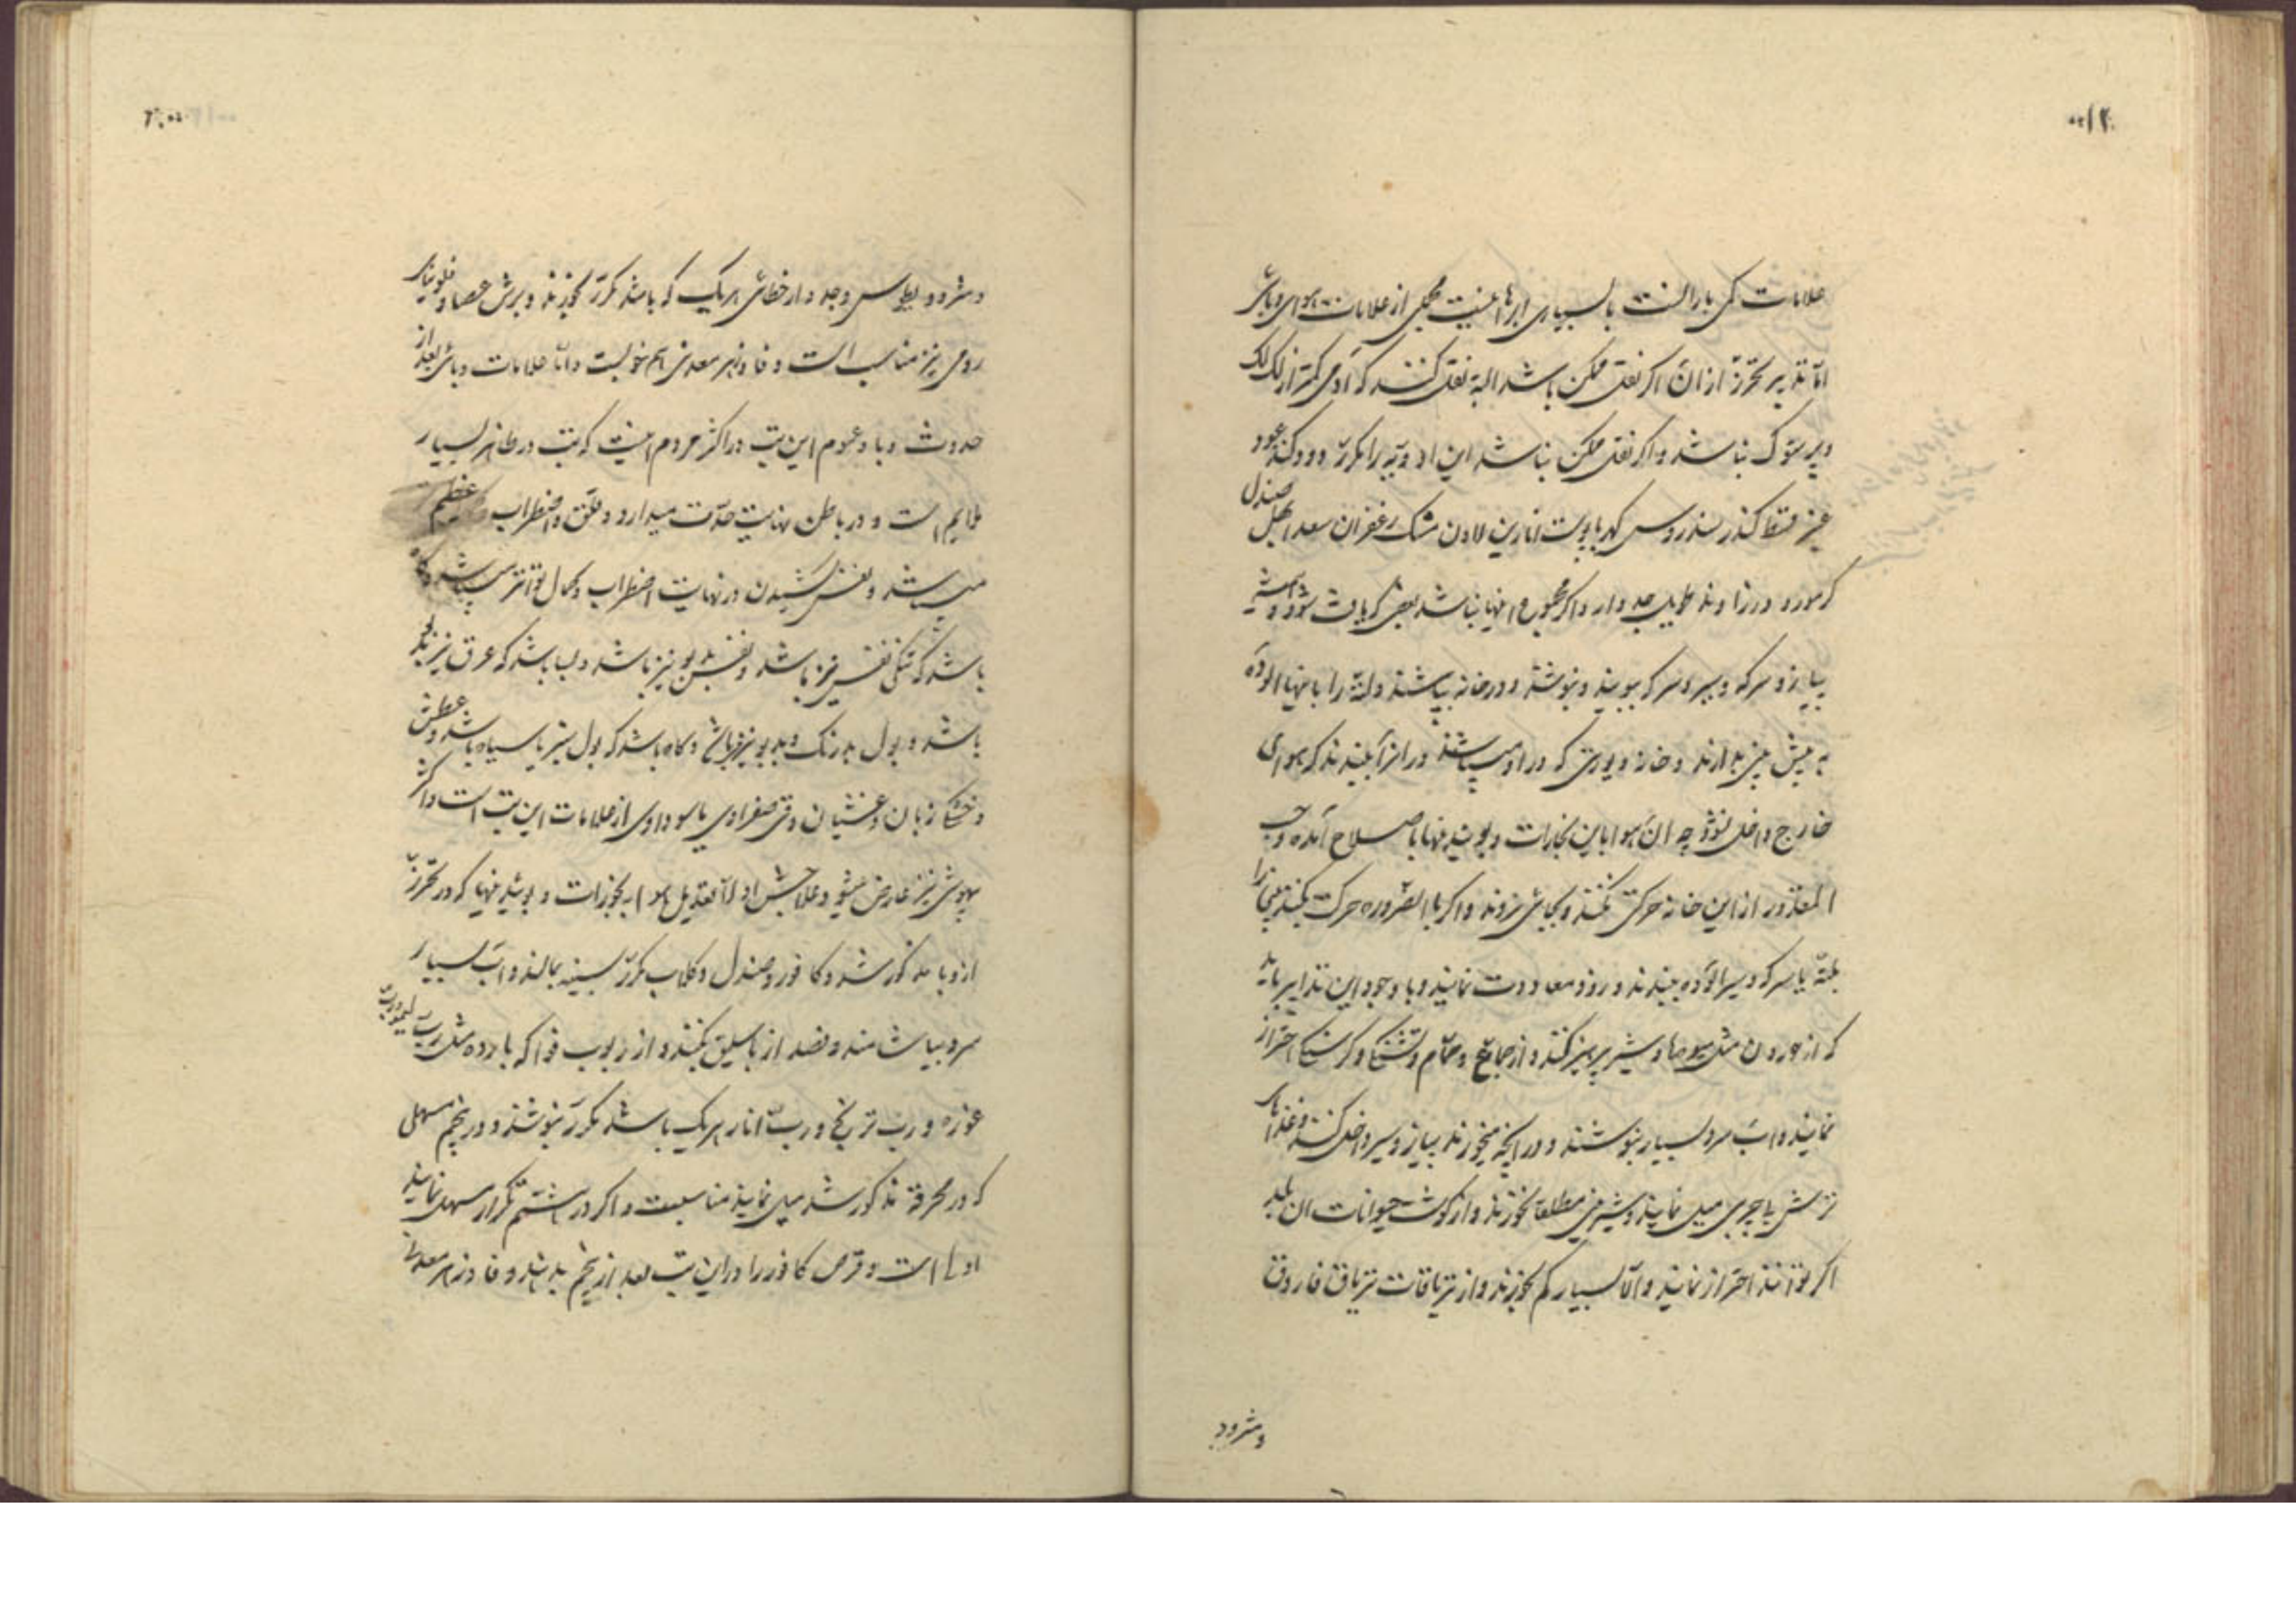 علامات کمی باران است با بسیاری ابرها اینست مجملی از علامات هوای وبائی
اما تدابیر تحرز از ان اگر نقل ممکن باشد البته نقل کنند که آدمی کمتر از لک لک
و پرستوک نباشد و اگر نقل ممکن نباشد این ادویه را مکرر دود کنند عود
عنبر قسط کندر سندروس کهربا پوست انارین لادن مشک زعفران سعد ابهل صندل
کرمورد و زراوند طویل جدوار و اگر مجموع اینها نباشد بعضی که یافت شود و همیشه
پیاز و سرکه و سیر و سرکه ببویند و بنوشند و در خانه بپاشند و لته را باینها الوده
به پیش بینی بدارند و خانه و یورتی که در او میباشند در انرا ببندند که هوای
خارج داخل نشود چه ان هوا باین بخارات و بوئیدنیها باصلاح آمده و حسب
المقدور از این خانه حرکتی نکنند و بجائی نروند و اگر بالضروره حرکت کنند بینی را
بلته با سرکه و سیر الوده ببندند و زود معاودت نمایند و با وجود این تدابیر باید
که از خوردن مثل میوها و شیر پرهیز کنند و از جماع و حمام و تشنگی و گرسنگی احتراز
نمایند و اب سرد بسیار بنوشند و در انچه میخورند پیاز و سیر داخل کنند و غذاهای
ترش با چربی میل نمایند و شیرینی مطلقا نخورند و از گوشت حیوانات ان بلد
اگر توانند احتراز نمایند و الا بسیار کم بخورند و از تریاقات تریاق فاروق
ومثرود
و مثرودیطوس و جدوار خطائی هریک که باشد مکرر بخورند و برش عصا و فلونیای
رومی نیز مناسب است و فادزهر معدنی هم خوبست و اما علامات وبائی بعد از
حدوث وبا و عموم این تب در اکثر مردم اینست که تب در ظاهر بسیار
ملایم است و در باطن نهایت حدت میدارد و قلق و اضطراب عظیم
میباشد و نفس کشیدن در نهایت اضطراب و کمال تواتر میباشد و گاه
باشد که تنگی نفس نیز باشد و نفس بدبو نیز باشد و بسا باشد که عرق نیز بدبو
باشد و بول بدرنگ و بدبو نیز باشد و گاه باشد که بول سبز یا سیاه باشد و عطش
و خشکی زبان و غشیان و قی صفراوی یا سوداوی از علامات این تب است و اکثر
بیهوشی نیز عارض میشود و علاجش اولا تعدیل هوا به بخورات و بوئیدنیها که در تحرز
از وبا مذکور شد و کافور و صندل و گلاب مکرر بسینه بمالند و اب بسیار
سرد بیاشامند و فصد از باسلیق بکنند و از ربوب فواکه بارده مثل رب لیمو و رب
غوره و رب ترنج و رب انار هریک باشد مکرر بنوشند و در پنجم مسهلی
که در محرقه مذکور شد میل نمایند مناسبست و اگر در هشتم تکرار مسهل نمایند
اولی است و قرص کافور را در این تب بعد از پنجم بدهند و فادزهر معدنی